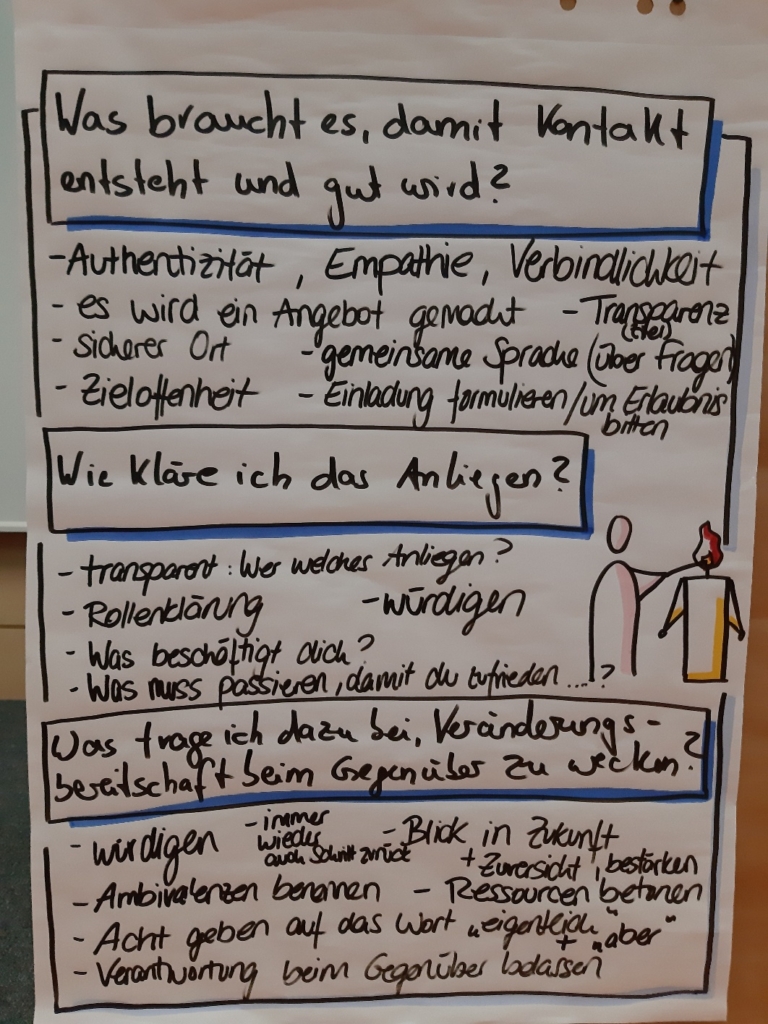 Was braucht es, damit Kontakt
entsteht und gut wird?
- Authentizität, Empathie, Verbindlichkeit
- es wird ein Angebot gemacht - Transparenz
- sicherer Ort - gemeinsame Sprache (über Fragen)
- Zieloffenheit - Einladung formulieren/um Erlaubnis
bitten
Wie kläre ich das Anliegen?
- transparent: Wer welches Anliegen?
- Rollenklärung - würdigen
- Was beschäftigt dich?
- Was muss passieren, damit du zufrieden ....?
Was trage ich dazu bei, Veränderungs-
bereitschaft beim Gegenüber zu wecken?
- würdigen - immer
wieder
auch Schritt zurück
- Blick in Zukunft
+ Zuversicht, bestärken
- Ambivalenzen benennen - Ressourcen betonen
- Acht geben auf das Wort „eigentlich"
+ „aber"
- Verantwortung beim Gegenüber belassen